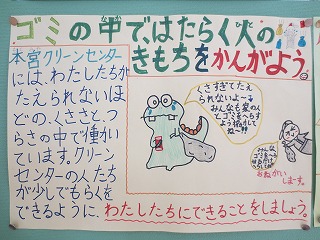 ゴミの中で、はたらく人の
きもちをかんがよう。
本宮クリーンセンター
には、わたしたちが
たえられないほ
どの、くささと、つ
らさの中で働い
ています。クリーン
センターの人たち
が少しでもらくを
できるように、わたしたちにできることをしましょう。
くさすぎてたえ
られないよ〜
みんなも家の
ゴミをへらす
ね〜!!
おねがい
します。